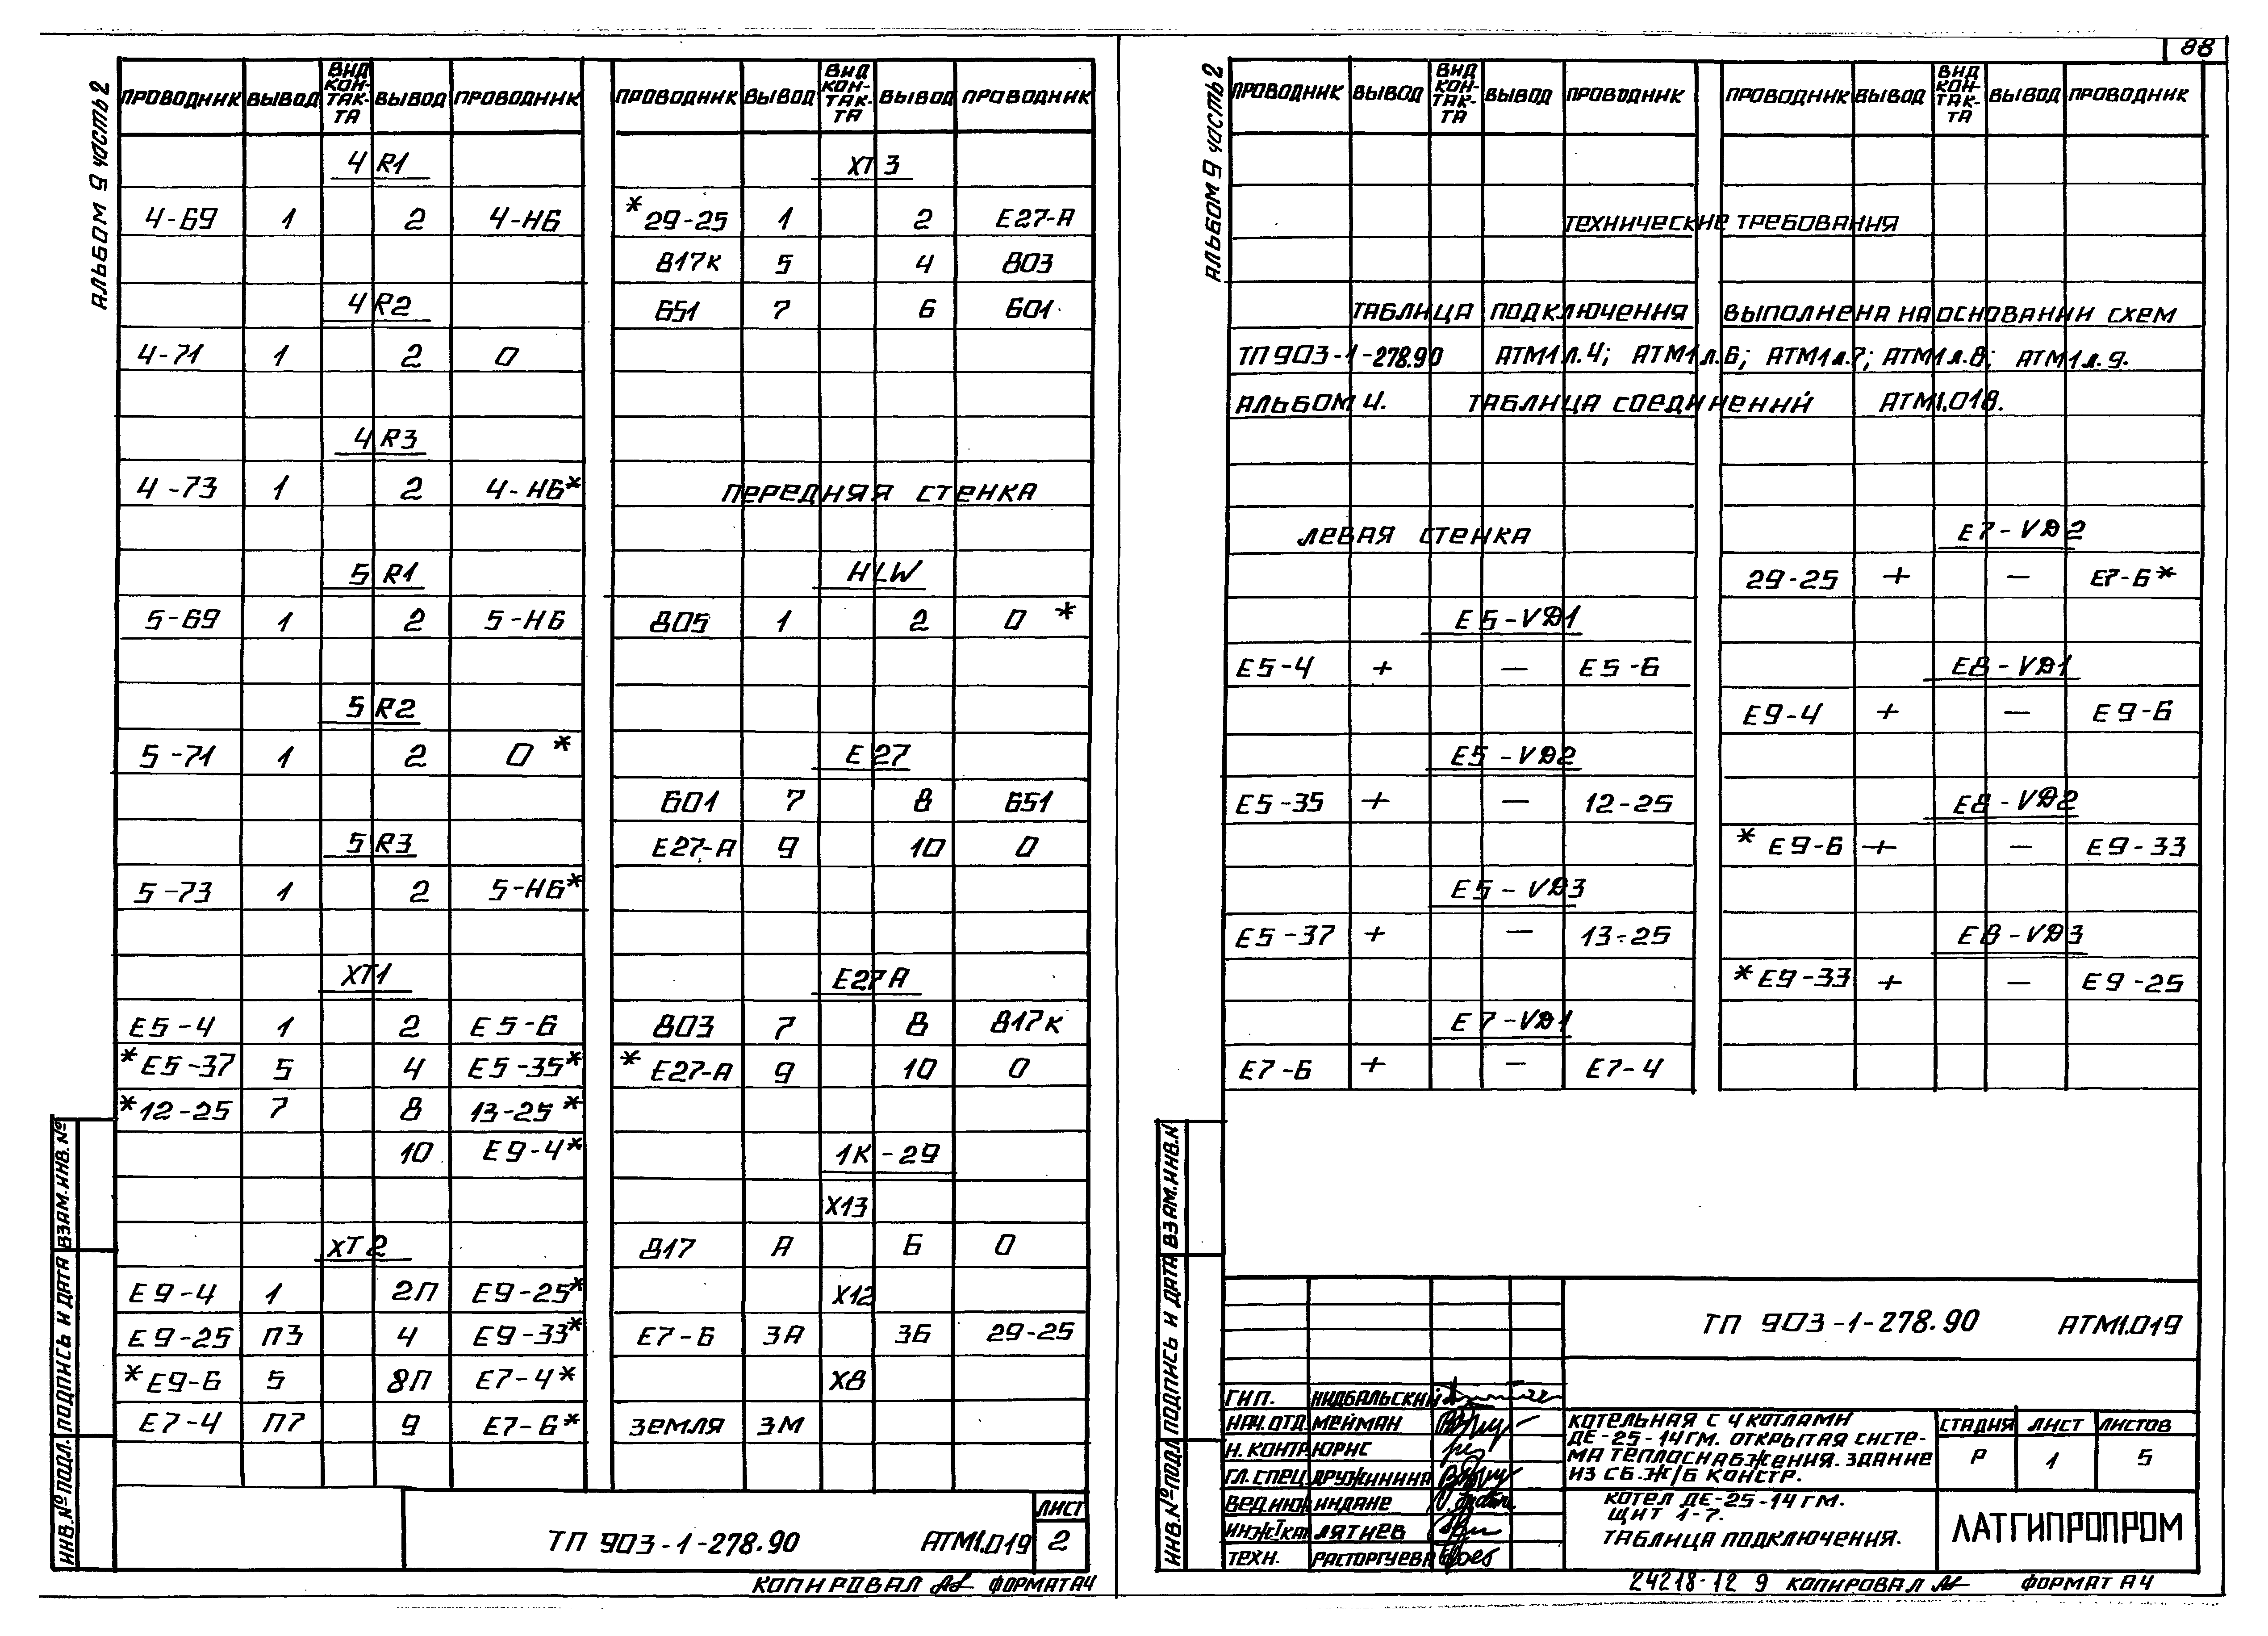 88
АЛЬБОМ 9 ЧАСТЬ 2
ПРОВОДНИК ВЫВОД ВИД КОН-ТАК-ТА ВЫВОД ПРОВОДНИК
4R1
4-69 1 2 4-Н6
4R2
4-71 1 2 0
4R3
4-73 1 2 4-Н6*
5R1
5-69 1 2 5-Н6
5R2
5-71 1 2 0*
5R3
5-73 1 2 5-Н6*
ХТ1
Е5-4 1 2 Е5-6
*Е5-37 5 4 Е5-35*
*12-25 7 8 13-25*
10 Е9-4*
ХТ2
Е9-4 1 2П Е9-25*
Е9-25 П3 4 Е9-33*
*Е9-6 5 8П Е7-4*
Е7-4 П7 9 Е7-6*
ПРОВОДНИК ВЫВОД ВИД КОН-ТАК-ТА ВЫВОД ПРОВОДНИК
ХТ3
*29-25 1 2 Е27-А
817К 5 4 803
651 7 6 601
ПЕРЕДНЯЯ СТЕНКА
HLW
805 1 2 0*
Е27
601 7 8 651
Е27-А 9 10 0
Е27А
803 7 8 817К
*Е27-А 9 10 0
1К-29
Х13
817 А Б 0
Х12
Е7-6 3А 3Б 29-25
Х8
ЗЕМЛЯ ЗМ
ИНВ.№ ПОДЛ. ПОДПИСЬ И ДАТА ВЗАМ.ИНВ.№
ТП 903-1-278.90 АТМ1.019
ЛИСТ
2
КОПИРОВАЛ ФОРМАТ А4
АЛЬБОМ 9 ЧАСТЬ 2
ПРОВОДНИК ВЫВОД ВИД КОН-ТАК-ТА ВЫВОД ПРОВОДНИК
ПРОВОДНИК ВЫВОД ВИД КОН-ТАК-ТА ВЫВОД ПРОВОДНИК
ТЕХНИЧЕСКИЕ ТРЕБОВАНИЯ
ТАБЛИЦА ПОДКЛЮЧЕНИЯ ВЫПОЛНЕНА НА ОСНОВАНИИ СХЕМ
ТП 903-1-278.90 АТМ1 Л.4; АТМ1 Л.6; АТМ1 Л.7; АТМ1 Л.8; АТМ1 Л.9.
АЛЬБОМ 4. ТАБЛИЦА СОЕДИНЕНИЙ АТМ1.018.
ЛЕВАЯ СТЕНКА
Е5-VД1
Е5-4 + — Е5-6
Е5-VД2
Е5-35 + — 12-25
Е5-VД3
Е5-37 + — 13-25
Е7-VД1
Е7-6 + — Е7-4
Е7-VД2
29-25 + — Е7-6*
Е8-VД1
Е9-4 + — Е9-6
Е8-VД2
*Е9-6 + — Е9-33
Е8-VД3
*Е9-33 + — Е9-25
ИНВ.№ ПОДЛ ПОДПИСЬ И ДАТА ВЗАМ.ИНВ.№
ТП 903-1-278.90 АТМ1.019
ГИП. НИДБАЛЬСКИЙ
НАЧ.ОТД МЕЙМАН
Н.КОНТР. ЮРНС
ГЛ.СПЕЦ ДРУЖИНИНА
ВЕД.ИНЖ ИНДАНЕ
ИНЖ.I КАТ ЛЯТИЕВ
ТЕХН. РАСТОРГУЕВА
КОТЕЛЬНАЯ С 4 КОТЛАМИ
ДЕ-25-14ГМ. ОТКРЫТАЯ СИСТЕ-
МА ТЕПЛОСНАБЖЕНИЯ. ЗДАНИЕ
ИЗ СБ.Ж/Б КОНСТР.
СТАДИЯ ЛИСТ ЛИСТОВ
Р 1 5
КОТЕЛ ДЕ-25-14ГМ.
ЩИТ 1-7.
ТАБЛИЦА ПОДКЛЮЧЕНИЯ.
ЛАТГИПРОПРОМ
24218-12 9 КОПИРОВАЛ ФОРМАТ А4